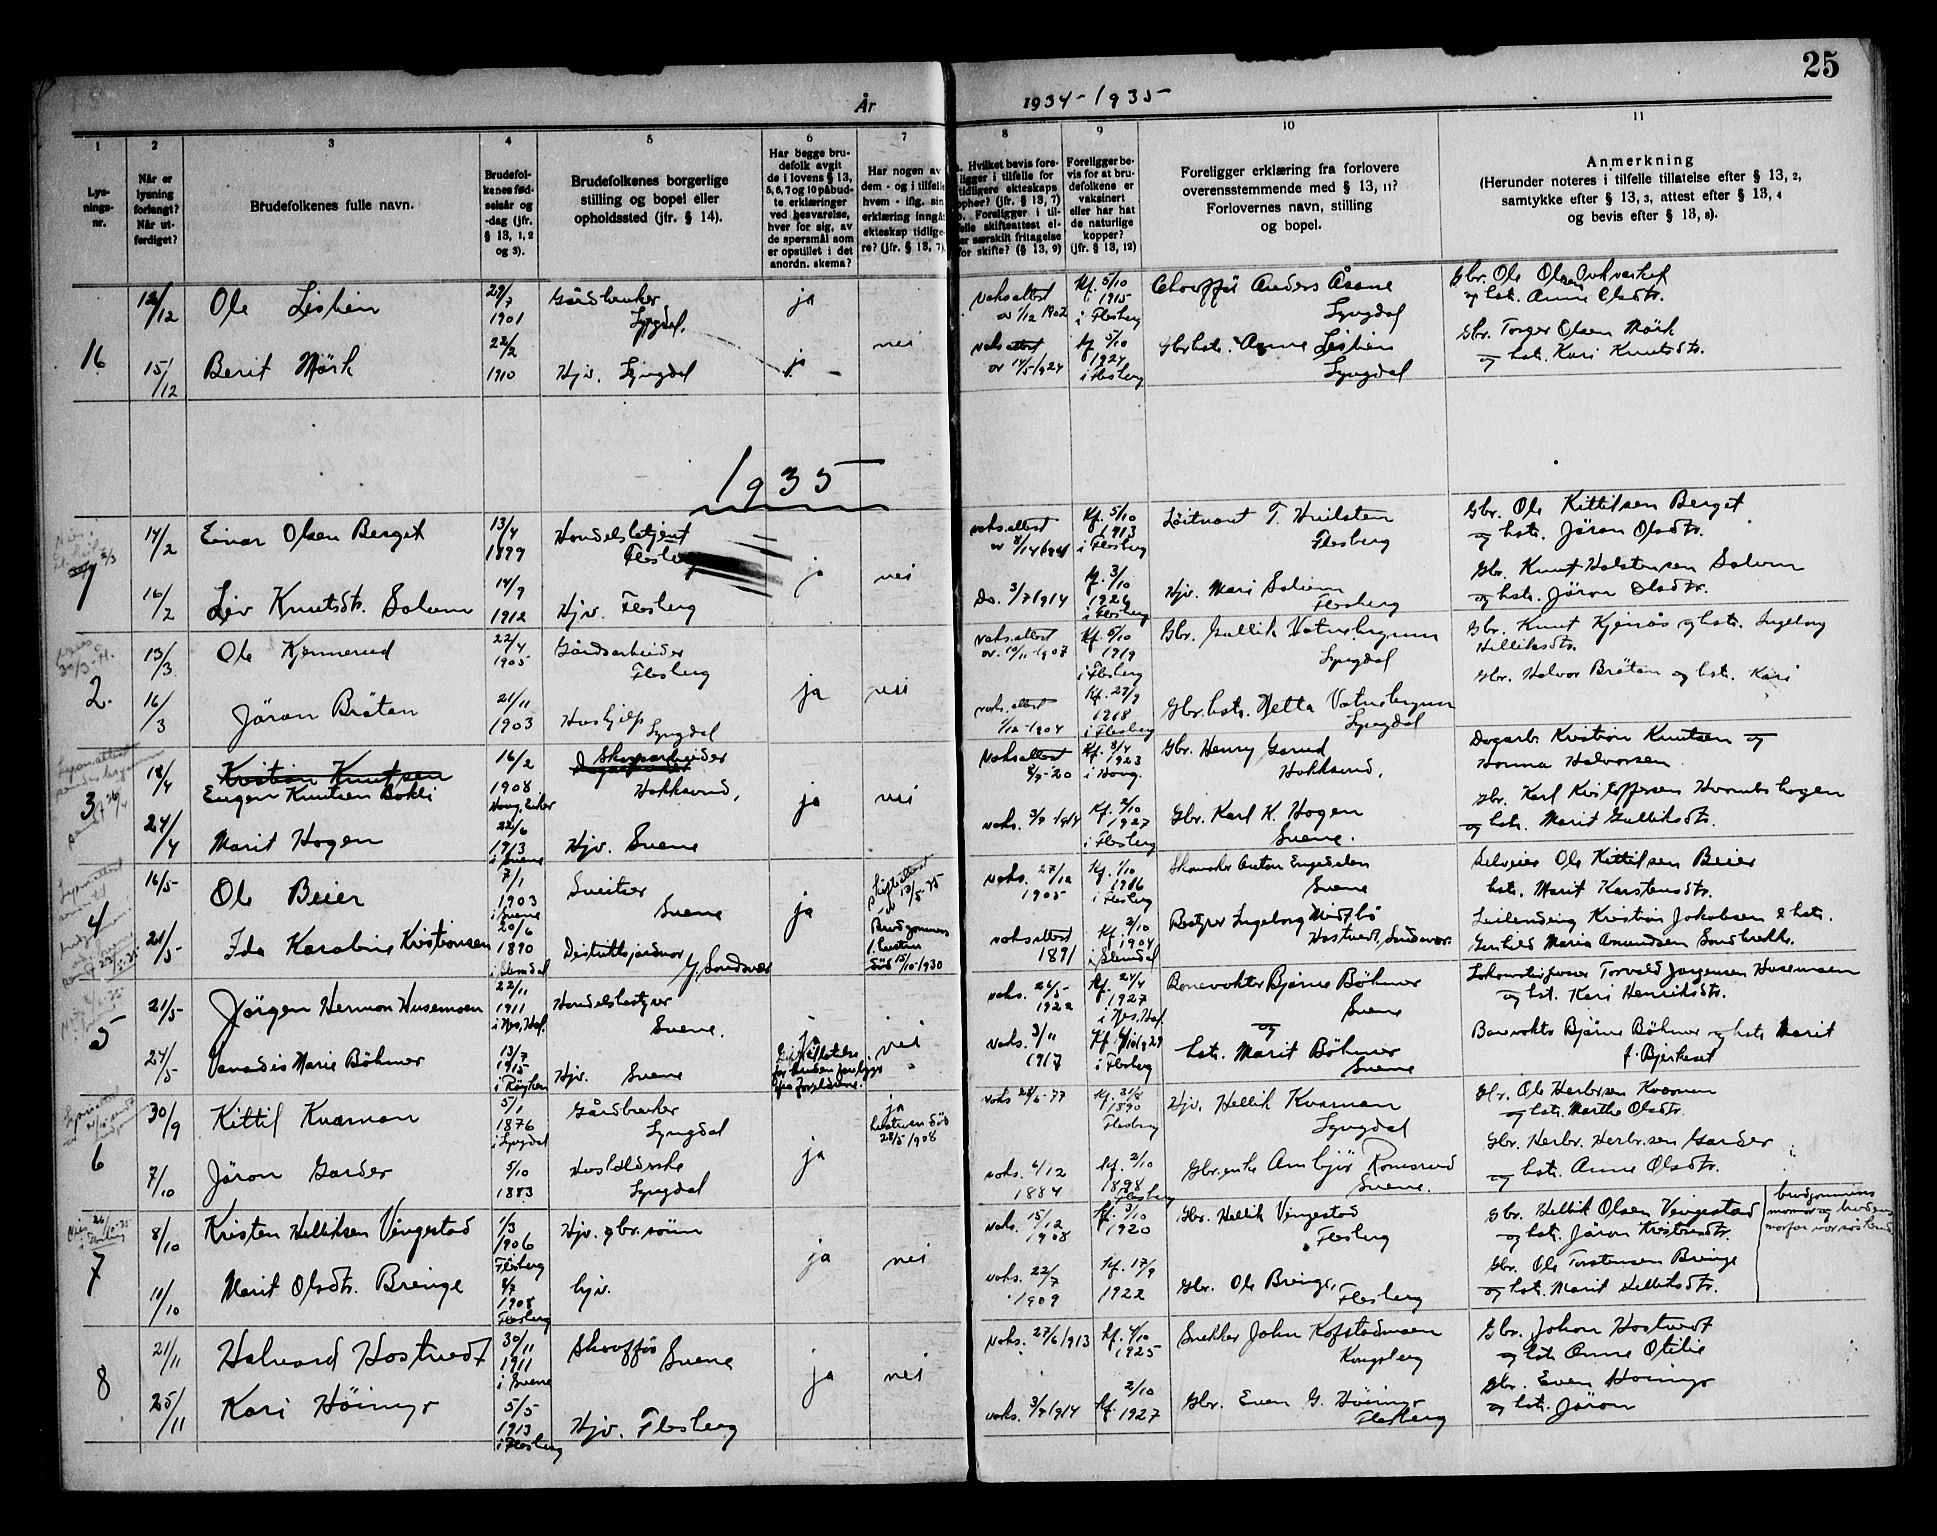 25
År 1934-1935
1
Lysnings-
nr.
2
Når er
lysning
forlangt?
Når ut-
ferdiget?
3
Brudefolkenes fulle navn.
4
Brudefol-
kenes fød-
selsår og
-dag (jfr.
§ 13, 1, 2
og 3).
5
Brudefolkenes borgerlige
stilling og bopel eller
opholdssted (jfr. § 14).
6
Har begge bru-
defolk avgit
de i lovens § 13,
5, 6, 7 og 10 påbud-
te erklæringer
ved besvarelse,
hver for sig, av
de spørsmål som
er opstillet i det
anordn. skema?
7
Har nogen av
dem - og i tilfelle
hvem - iflg. sin
erklæring inngått
ekteskap tidlige-
re? (jfr. § 13, 7).
8
Hvilket bevis fore-
ligger i tilfelle for
tidligere ekteskaps
ophør? (jfr. § 13, 7)
b. Foreligger i til-
felle skifteattest el-
ler særskilt fritagelse
for skifte? (§ 13, 9)
9
Foreligger be-
vis for at bru-
defolkene er
vaksinert
eller har hat
de naturlige
kopper?
(jfr. § 13, 12)
10
Foreligger erklæring fra forlovere
overensstemmende med § 13, 11?
Forlovernes navn, stilling
og bopel.
11
Anmerkning
(Herunder noteres i tilfelle tillatelse efter § 13, 2,
samtykke efter § 13, 3, attest efter § 13, 4
og bevis efter § 13, 8).
16
12/12 Ole Lislien 29/7 1901 Gårdbruker Lyngdal. ja
vaks.attest av 1/12 1902 Kf. 5/10 1915 i Flesberg Chauffør Anders Åsane Lyngdal Gbr. Ole Olsen
og hst. Anne Olsdtr.
15/12 Berit Mörk 22/2 1910 Hjv. Lyngdal ja nei
vaks.attest av 14/5 1924 Kf. 5/10 1924 i Flesberg Gbrhst. Anne Lislien Lyngdal Gbr. Torger Olsen Mörk
og hst. Kari Knutsdtr.
1935
1
14/2 Einar Olsen Berget 13/4 1899 Handelsbetjent Flesberg
vaks.attest Kf. 5/10 1913 i Flesberg Löitnant T. Flesberg Gbr. Ole Kittilsen Berget
og hst. Jöran Olsdtr.
16/2 Liv Knutsdtr. Solum 14/9 1912 Hjv. Flesberg ja nei
Do. 3/7 1914 Kf. 3/10 1926 i Flesberg Hjv. Mari Solum Flesberg Gbr. Knut Halstensen Solum
og hst. Jöran Olsdtr.
2.
13/3 Ole Kjennerud 22/4 1905 Gårdsarbeider Flesberg
vaks.attest av 10/11 1907 Kf. 5/10 1919 i Flesberg Gbr. Gullik Lyngdal Gbr. Knut Kjenås og hst. Ingeborg
Helliksdtr.
16/3 Jöran Bråten 21/11 1903 Hushjelp Lyngdal ja nei
vaks.attest 1/12-1904 Kf. 29/9 1918 i Flesberg Gbr.hst. Netta Lyngdal Gbr. Halvor Bråten og hst. Kari
3
18/4 Kristian Knutsen
Eugen Knutsen Bakli 16/2 1908 Haug, Eiker Skogsarbeider Hokksund,
Vaksattest 8/9-'20 Kf. 8/4 1923 i Haug. Gbr. Henry Garud Hokksund. Dagarb. Kristian Knutsen og
Hanna Halvorsen
24/4 Marit Hogen 22/6 1913 i Svene Hjv. Svene ja nei
vaks. 3/7 1914 Kf. 2/10 1927 i Flesberg Gbr. Karl K. Hogen Svene. Gbr. Karl Kristoffersen
og hst. Marit Gulliksdtr.
4
16/5 Ole Beier 7/1 1903 i Svene Sveitser Svene ja
vaks. 27/12 1905 Kf. 1/10 1916 i Flesberg Skomaker Anton Engedalen Svene Selveier Ole Kittilsen Beier
hst. Marit Karstensdtr.
21/5 Ida Karoline Kristiansen 20/6 1890 i Slemdal Distriktsjordmor Y. Sandsvær
død 15/10-1930
vaks.attest 1891 Kf. 2/10 1904 i Slemdal Bestyr Ingeborg Midtbö Hostvedt, Sandsvær. Leilending Kristian Jakobsen & hst.
Gunhild Maria Amundsen
5
21/5 Jörgen Herman Husemoen 22/11 1911 i Nes, Hal. Handelsbestyrer Svene.
vaks. 26/5 1922 Kf. 24/4 1927 i Nes, Hal. Banevokter Bjarne Böhmer Svene
og Lokomotivfyrer Torvald Jørgensen Husemoen
og hst. Kari Henriksdtr.
24/5 Vanadis Marie Böhmer 13/7 1915 i Röyken Hjv. Svene ja nei
vaks. 3/11 1917 i Flesberg hst. Marit Böhmer Svene Banevokter Bjarne Böhmer og hst. Marit
f. Bjerkeset
6
30/9 Kittil Kvarman 5/1 1876 i Lyngdal Gårdbruker Lyngdal ja
hustruen död
28/5 1908
Kf. 1890 Flesberg Hjv. Hellik Kvarman Lyngdal Gbr. Ole Herbr.sen Kvarman
og hst. Marthe Olsdtr.
7/10 Jöran Garder 5/10 1883 Husholderske Lyngdal ja
vaks. 6/12 1884 Kf. 2/10 1898 Flesberg Gbr.enke Ambjör Romsrud Svene. Gbr. Herbr. Herbr.sen Garder
og hst. Anne Olsdtr.
7
8/10 Kristen Helliksen Vingestad 1/3 1906 Flesberg Hjv. gbr.sönn
vaks. 15/12 1908 Kf. 3/10 1920 Gbr. Hellik Vingestad Flesberg Gbr. Hellik Olsen Vingestad
og hst. Jöran Kristensdtr.
brudgommens
mormor og brudens
morfar var söskend
11/10 Marit Olsdtr. Bringe 8/7 1908 Flesberg hjv. ja nei
vaks. 22/7 1909 Kf. 17/9 1922 Gbr. Ole Bringe, Flesberg Gbr. Ole Torstensen Bringe
og hst. Marit Helliksdtr.
8
21/11 Halvard Hostvedt 30/11 1911 i Svene Skofför Svene
Vaks. 27/6 1913 Kf. 4/10 1925 Snekker John Kofstadmoen Kongsberg Gbr. Johan Hostvedt
og hst. Anne Otilie
25/11 Kari Höimyr 5/5 1913 i Flesberg Hjv. Flesberg ja nei
vaks. 3/7 1914 Kf. 2/10 1927 Gbr. Even G. Höimyr Flesberg Gbr. Even Höimyr
og hst. Jöran